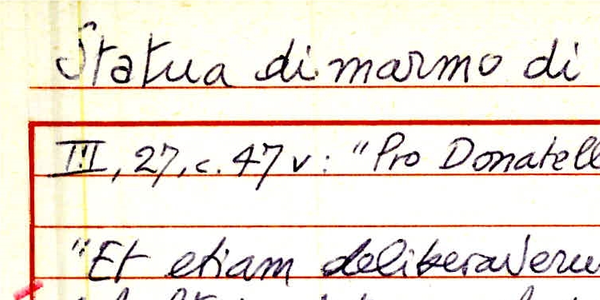 Statua di marmo di
III, 27, c. 47 v: "Pro Donatell
"Et etiam deliberaveru